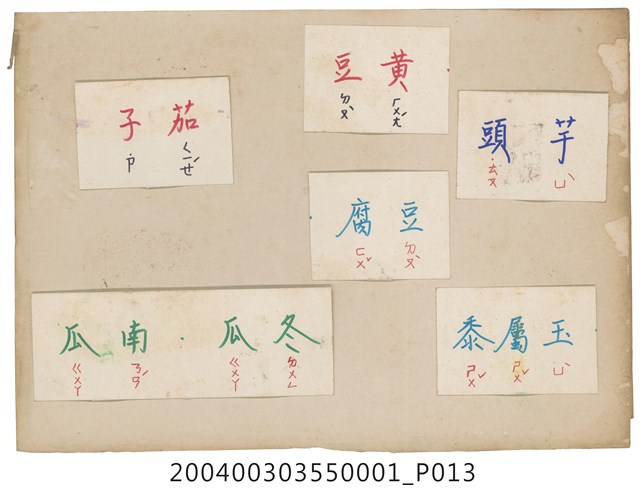 黃豆
ㄏㄨㄤˊ ㄉㄡˋ
茄子
ㄑㄧㄝˊ ˙ㄗ
芋頭
ㄩˋ ˙ㄊㄡ
豆腐
ㄉㄡˋ ㄈㄨˇ
冬瓜·南瓜
ㄉㄨㄥ ㄍㄨㄚ ㄋㄢˊ ㄍㄨㄚ
玉屬黍
ㄩˋ ㄕㄨˇ ㄕㄨˇ
200400303550001_P013